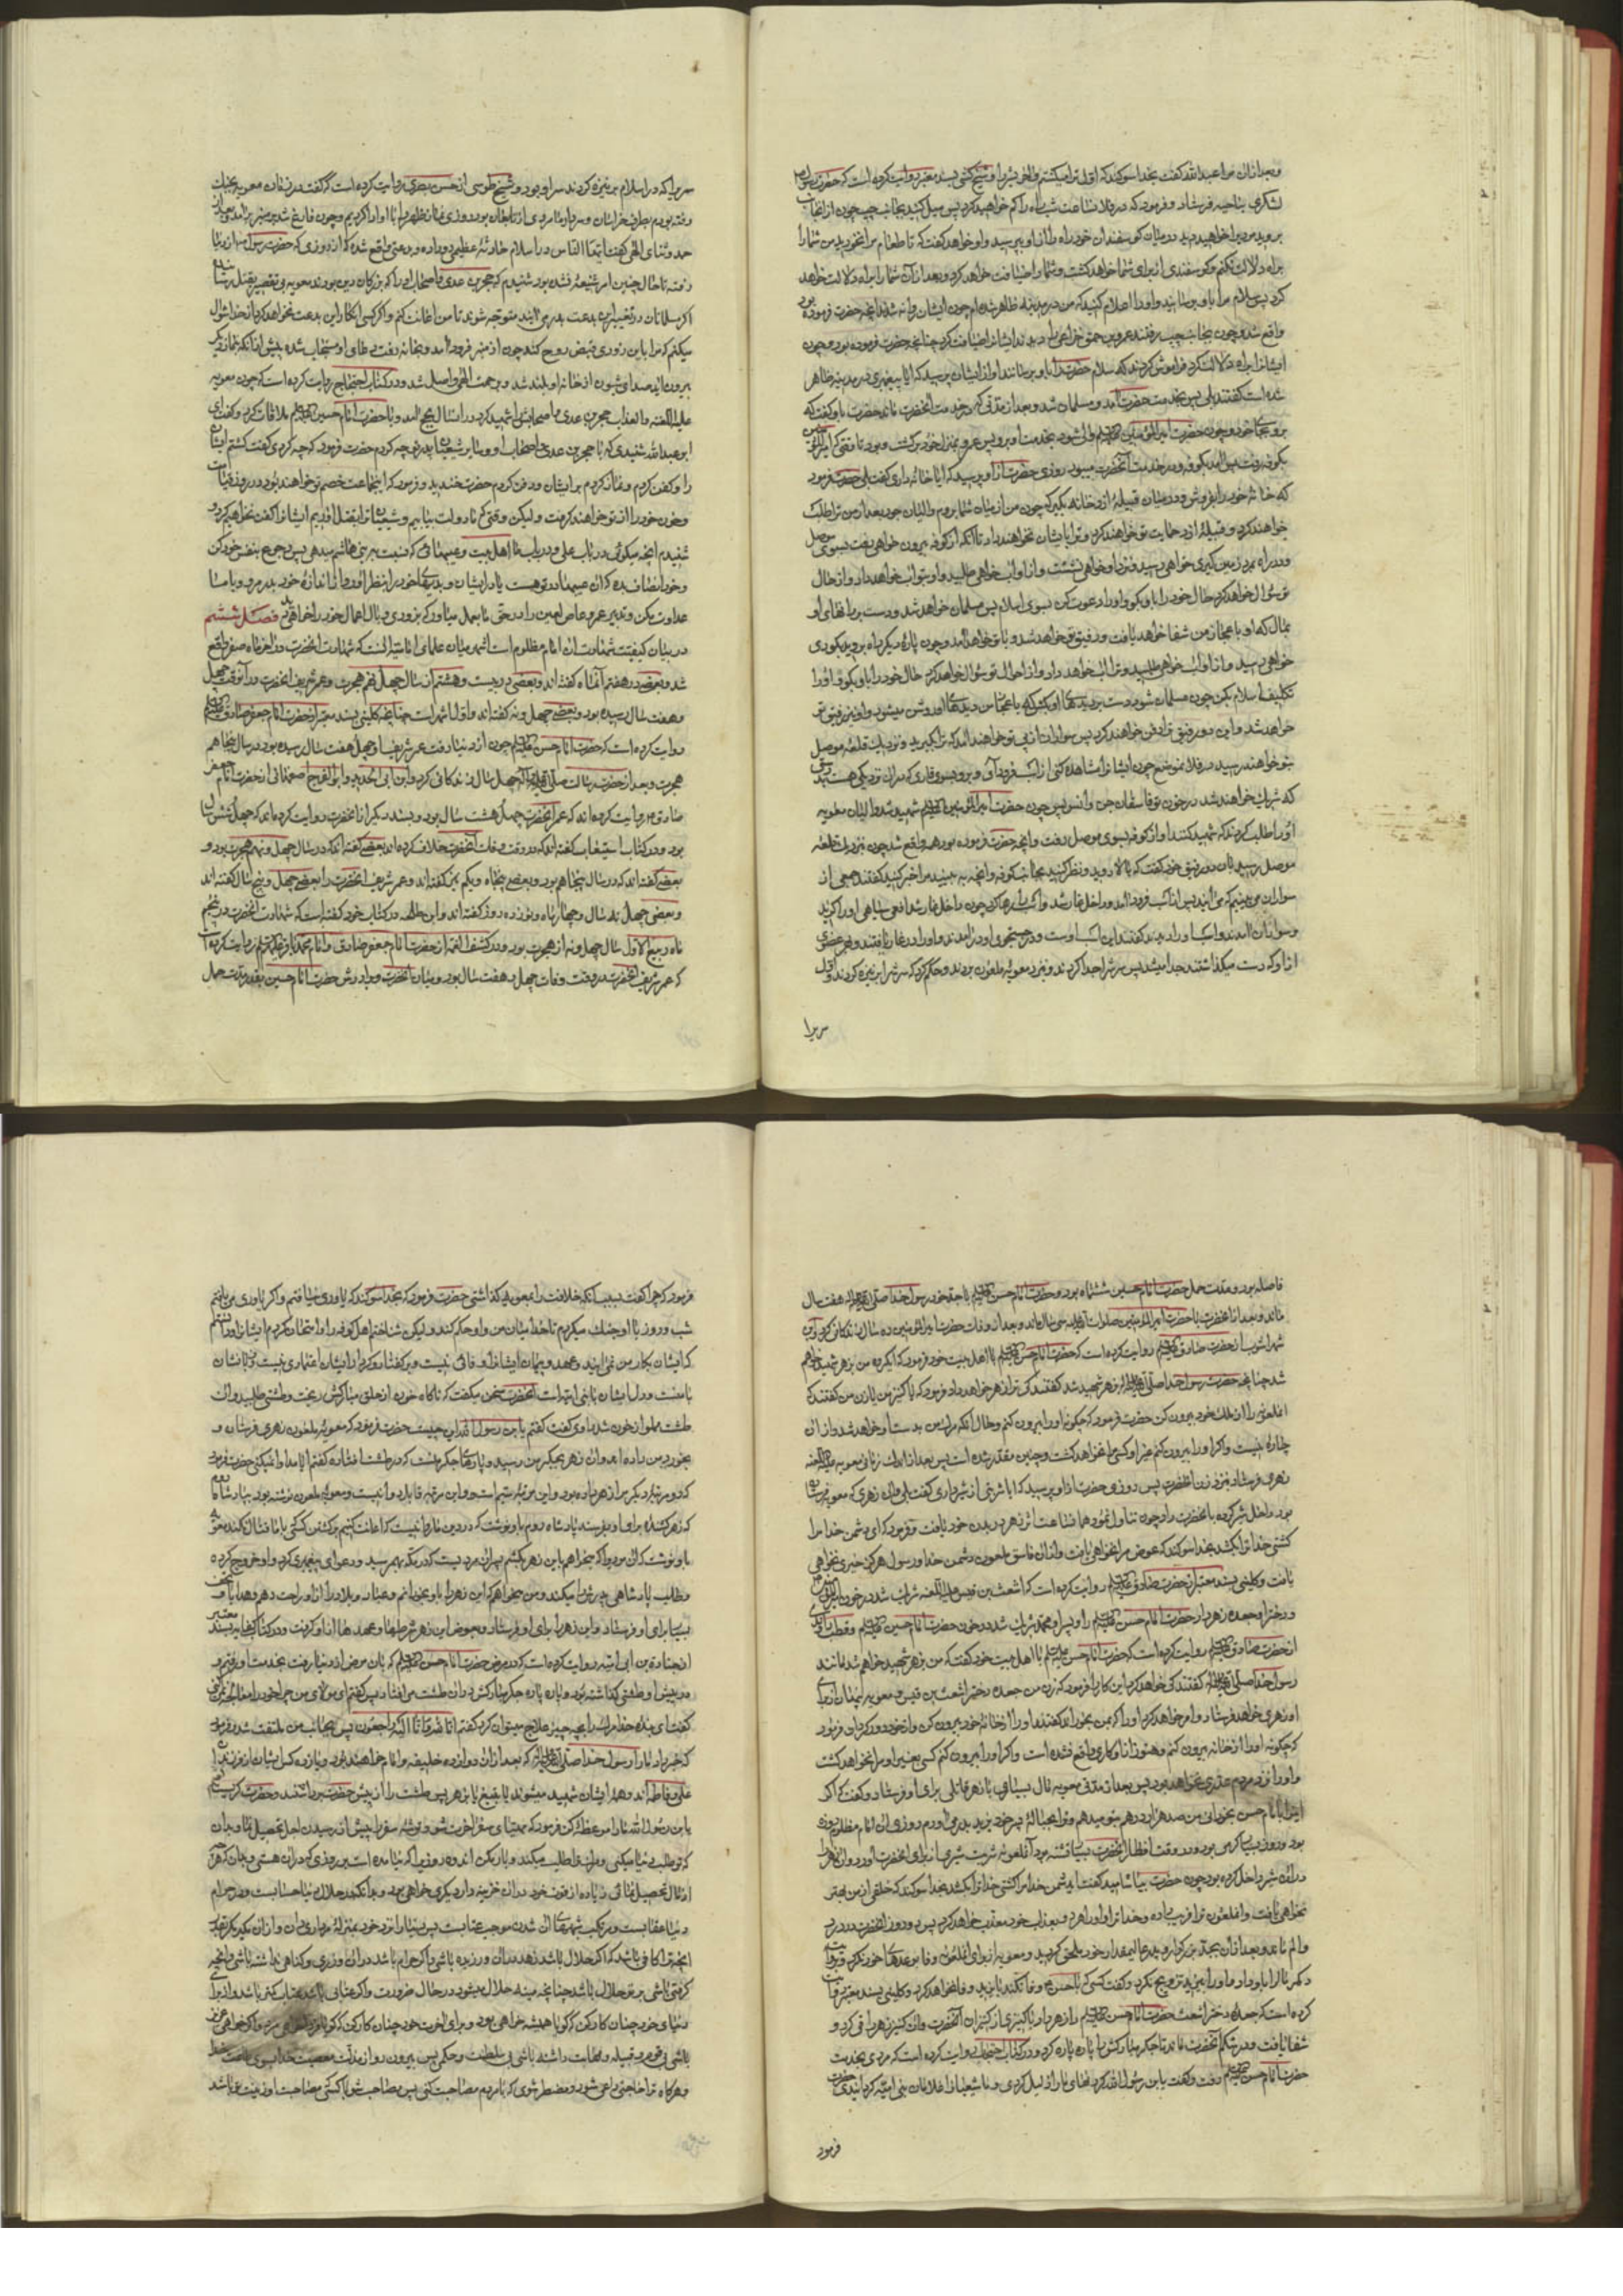 و بعد ازان مرا عبدالله گفت بخدا سوگند که اول ترا میکشتم و شیخ کشی بسند معتبر روایت کرده است که حضرت رسول
لشکری بناحیه فرستاد و فرمود که در فلان ساعت شب راه را گم خواهید کرد پس میل کنید بجانب چپ چون از انجانب
بروید مردی را خواهید دید در میان گوسفندان خود راه را از او بپرسید و او خواهد گفت که تا طعام مرا نخورید من شما را
براه دلالت نکنم و گوسفندی از برای شما خواهد کشت و شما را ضیافت خواهد کرد و بعد از آن شما را براه دلالت خواهد
کرد پس سلام مرا باو برسانید و او را اعلام کنید که من در مدینه ظاهر شده‌ام چون ایشان روانه شدند آنچه حضرت فرموده بود
واقع شد و چون بجانب چپ رفتند عمرو بن حمق خزاعی را دیدند ایشانرا ضیافت کرد چنانچه حضرت فرموده بود و چون
ایشانرا براه دلالت کرد فراموش کردند که سلام حضرت را باو برسانند او از ایشان پرسید که ایا پیغمبری در مدینه ظاهر
شده است گفتند بلی پس بخدمت حضرت آمد و مسلمان شد و بعد از مدتی که در خدمت آنحضرت ماند حضرت باو گفت که
برو بجای خود و چون حضرت امیرالمؤمنین علیه السلام والی شود بخدمت او برو پس عمرو بمنزل خود برگشت و بود تا وقتی که امیرالمؤمنین
بکوفه رفت پس آمد بکوفه و در خدمت آنحضرت میبود روزی حضرت از او پرسید که ایا خانه داری گفت بلی حضرت فرمود
که خانه خود را بفروش و در میان قبیله ازد خانه بگیر که چون من از میان شما بروم والیان جور بعد از من ترا طلب
خواهند کرد و قبیله ازد حمایت تو خواهند کرد و ترا بایشان نخواهند داد تا آنکه از کوفه بیرون خواهی رفت بسوی موصل
و در راه بمرد زمین گیری خواهی رسید و نزد او خواهی نشست و از او آب خواهی طلبید و او بتو آب خواهد داد و از حال
تو سؤال خواهد کرد حال خود را باو بگو و او را دعوت کن بسوی اسلام پس مسلمان خواهد شد و دست بر رانهای او
بمال که او باعجاز من شفا خواهد یافت و رفیق تو خواهد شد و با تو خواهد آمد و چون پاره دیگر راه بروید بکوری
خواهی رسید و از او آب خواهی طلبید و ترا آب خواهد داد و از احوال تو سؤال خواهد کرد حال خود را باو بگو و او را
تکلیف اسلام بکن چون مسلمان شود دست بر دیدهای او بکش که باعجاز من دیدهای او روشن میشود و او نیز رفیق تو
خواهد شد و این دو رفیق ترا دفن خواهند کرد پس سواران از پی تو خواهند آمد که ترا بگیرند و نزدیک قلعه موصل
بتو خواهند رسید در فلان موضع چون ایشانرا مشاهده کنی از اسب فرود آی و برو بسوی غاری که دران نزدیکی هست بدرستی
که شریک خواهند شد در خون تو فاسقان جن و انس پس چون حضرت امیرالمؤمنین علیه السلام شهید شد والیان معویه
او را طلب کردند که شهید کنند او از کوفه بسوی موصل رفت و آنچه حضرت فرموده بود همه واقع شد چون بنزدیک قلعه
موصل رسید بان دو رفیق خود گفت که بالا روید و نظر کنید بجانب کوفه و آنچه به بینید مرا خبر کنید گفتند جمعی از
سواران می بینیم که می آیند پس از اسب فرود آمد و داخل غار شد و اسب را رها کرد چون داخل غار شد افعی سیاهی او را گزید
و سواران آمدند و اسب او را دیدند گفتند این اسب اوست و در جستجوی او درآمدند و او را در غار یافتند و هر عضوی
از او که دست میگذاشتند جدا میشد پس سرش را جدا کردند و بنزد معویه ملعون بردند و حکم کرد که سرش را بر نیزه کردند و اول
سریرا
سریرا که در اسلام بر نیزه کردند سر او بود و شیخ طوسی از حسن بصری روایت کرده است که گفت در زمان معویه بجنگ
رفته بودم بطرف خراسان و سردار ما مردی از تابعان بود روزی نماز ظهر را با او ادا کردیم و چون فارغ شد بر منبر برآمد و بعد از
حمد و ثنای الهی گفت ایها الناس در اسلام حادثه عظیمی رو داده و بدعتی واقع شده که از روزی که حضرت رسول ص از دنیا
رفته تا حال چنین امر شنیعی نشده بود شنیدم که حجر بن عدی و اصحاب او را که بزرگان دین بودند معویه بی تقصیر بقتل رسانیده
اگر مسلمانان در تغییر این بدعت بدر می آیند متوجه شوند تا من اعانت کنم و اگر کسی انکار این بدعت نخواهد کرد از خدا سؤال
میکنم که مرا باین زودی قبض روح کند چون از منبر فرود آمد و بخانه رفت دعای او مستجاب شده پیش از آنکه نماز دیگر
بیرون آید صدای شیون از خانه او بلند شد و برحمت الهی واصل شد و در کتاب احتجاج روایت کرده است که چون معویه
علیه اللعنه و العذاب حجر بن عدی و اصحابش را شهید کرد در انسال بحج آمد و با حضرت امام حسین علیه السلام ملاقات کرد و گفت ای
ابو عبدالله شنیدی که با حجر بن عدی و اصحاب او و سایر شیعیان پدر تو چه کردم حضرت فرمود که چه کردی گفت کشتم ایشان
را و کفن کردم و نماز کردم بر ایشان و دفن کردم حضرت خندید و فرمود که اینجماعت خصم تو خواهند بود در روز قیامت
و خون خود را از تو خواهند گرفت و لیکن وقتی که ما دولت بیابیم و شیعیان ترا بقتل آوریم ایشانرا کفن نخواهیم کرد
شنیدم آنچه میگوئی در باب علی و در باب ما اهل بیت و عیبهائی که نسبت به بنی هاشم میدهی پس رجوع بنفس خود کن
و خود انصاف بده که آن عیبها در تو هست یا در ایشان و بدیهای خود را بنظر آور و از اندازه خود بدر مرو و با ما
عداوت مکن و تدبیر عمرو عاص لعین را در حق ما بعمل میاور که بزودی وبال اعمال خود را خواهی یافت فصل ششم
در بیان کیفیت شهادت آن امام مظلوم است اشهر میان علمای امامیه انست که شهادت انحضرت در آخر ماه صفر واقع
شد و بعضی در هفتم آنماه گفته اند و بعضی در بیست و هشتم آن سال چهل و نهم هجرت و عمر شریف انحضرت در آنوقت چهل
و هفت سال رسیده بود و بعضی چهل و نه گفته اند و اول اشهر است چنانچه کلینی بسند معتبر از حضرت امام جعفر صادق علیه السلام
روایت کرده است که حضرت امام حسن علیه السلام چون از دنیا رفت عمر شریف او چهل هفت سال رسیده بود در سال پنجاهم
هجرت و بعد از حضرت رسالت صلی الله علیه و اله چهل سال زندگانی کرد و ابن ابی الحدید و ابو الفرج اصفهانی از حضرت امام جعفر
صادق روایت کرده اند که عمر آنحضرت چهل هشت سال بود و بسند دیگر از انحضرت روایت کرده اند که چهل و شش سال
بود و در کتاب استیعاب گفته اند که در وقت وفات آنحضرت خلاف کرده اند بعضی گفته اند که در سال چهل و نهم هجرت بود و
بعضی گفته اند که در سال پنجاهم بود و بعضی پنجاه و یکم نیز گفته اند و عمر شریف انحضرت را بعضی چهل و پنج سال گفته اند
و بعضی چهل و نه سال و چهار ماه و نوزده روز گفته اند و ابن طلحه در کتاب خود گفته است که شهادت آنحضرت در پنجم
ماه ربیع الاول سال چهل و نه از هجرت بود و در کشف الغمه از حضرت امام جعفر صادق و امام محمد باقر علیهما السلام روایت کرده است
که عمر شریف انحضرت در وقت وفات چهل و هفت سال بود و میان انحضرت و برادرش حضرت امام حسین بقدر مدت حمل
فاصله بود و مدت حمل حضرت امام حسین ششماه بود و حضرت امام حسن علیه السلام با جد خود رسول خدا صلی الله علیه و اله هفت سال
ماند و بعد از انحضرت با حضرت امیرالمؤمنین صلوات الله علیه سی سال ماند و بعد از وفات حضرت امیرالمؤمنین ده سال زندگانی کرد و ابن
شهراشوب از حضرت صادق علیه السلام روایت کرده است که حضرت امام حسن علیه السلام با اهل بیت خود فرمود که من بزهر شهید خواهم
شد چنانچه حضرت رسول خدا صلی الله علیه و اله بزهر شهید شد گفتند کی ترا زهر خواهد داد فرمود که یا کنیز من یا زن من گفتند که
انملعونه را از ملک خود بیرون کن حضرت فرمود که چگونه او را بیرون کنم و حال آنکه مرگ من بدست او خواهد شد و ازان
چاره نیست و اگر او را بیرون کنم غیر او کسی مرا نخواهد کشت و چنین مقدر شده است پس بعد از اندک زمانی معویه علیه اللعنه
زهری فرستاد بنزد زن انحضرت پس روزی حضرت از او پرسید که ایا شربتی از شیر داری گفت بلی و آن زهری که معویه فرستاده
بود داخل شیر کرده بانحضرت داد چون تناول نمود همان ساعت اثر زهر در بدن خود یافت و فرمود که ای دشمن خدا مرا
کشتی خدا ترا بکشد بخدا سوگند که عوض مرا نخواهی یافت و ازان فاسق ملعون دشمن خدا و رسول هرگز خیری نخواهی
یافت و کلینی بسند معتبر از حضرت صادق علیه السلام روایت کرده است که اشعث بن قیس علیه اللعنه شریک شد در خون امیرالمؤمنین
و دختر او جعده زهر داد حضرت امام حسن علیه السلام را و پسر او محمد شریک شد در خون حضرت امام حسین علیه السلام و قطب راوندی
از حضرت صادق علیه السلام روایت کرده است که حضرت امام حسن علیه السلام با اهل بیت خود گفت که من بزهر شهید خواهم شد مانند
رسول خدا صلی الله علیه و اله گفتند کی خواهد کرد این کار را فرمود که زن من جعده دختر اشعث بن قیس و معویه پنهان برای
او زهری خواهد فرستاد و امر خواهد کرد او را که بمن بخوراند گفتند او را از خانه خود بیرون کن و از خود دور گردان فرمود
که چگونه او را از خانه بیرون کنم و هنوز از او کاری واقع نشده است و اگر او را بیرون کنم کسی بغیر او مرا نخواهد کشت
و او را نزد مردم عذری خواهد بود پس بعد از مدتی معویه مال بسیاری با زهر قاتلی برای او فرستاد و گفت که اگر
اینرا بامام حسن بخورانی من صد هزار درهم بتو میدهم و ترا بحباله پسر خود یزید بدر می اورم روزی ان امام مظلوم روزه
بود و روز بسیار گرمی بود و در وقت افطار انحضرت بسیار تشنه بود آنملعونه شربت شیری از برای انحضرت اورد و ان زهر را
دران شیر داخل کرده بود چون حضرت بیاشامید گفت ایدشمن خدا مرا کشتی خدا ترا بکشد بخدا سوگند که خلفی از من بهتر
نخواهی یافت و انملعون ترا فریب داده و خدا ترا و او را هر دو بعذاب خود معذب خواهد کرد پس دو روز انحضرت در درد
و الم ماند و بعد از ان بجد بزرگوار و پدر عالیمقدار خود ملحق گردید و معویه از برای انملعونه وفا بوعدهای خود نکرد و بروایت
دیگر مال را باو داد و او را بیزید تزویج نکرد و گفت کسی که با حسن وفا نکند با یزید وفا نخواهد کرد و کلینی بسند معتبر روایت
کرده است که جعده دختر اشعث حضرت امام حسن علیه السلام را زهر داد با کنیزی از کنیزان آنحضرت و ان کنیز زهر را قی کرد و
شفا یافت و در شکم انحضرت ماند تا جگر مبارکش را پاره پاره کرد و در کتاب احتجاج روایت کرده است که مردی بخدمت
حضرت امام حسن علیه السلام رفت و گفت یابن رسول الله گردنهای ما را ذلیل کردی و ما شیعیان را غلامان بنی امیه گردانیدی حضرت
فرمود
فرمود که چرا گفت بسبب آنکه خلافت را بمعویه گذاشتی حضرت فرمود که بخدا سوگند که یاوری نیافتم و اگر یاوری می یافتم
شب و روز با او جنگ میکردم تا خدا میان من و او حکم کند و لیکن شناختم اهل کوفه را و امتحان کردم ایشانرا و دانستم
که ایشان بکار من نمی آیند و عهد و پیمان ایشانرا وفائی نیست و بر گفتار و کردار ایشان اعتمادی نیست زبانشان
با منست و دل ایشان با بنی امیه است آنحضرت سخن میگفت که ناگاه خون از حلق مبارکش ریخت و طشتی طلبید و آن
طشت مملو از خون شد راوی گفت گفتم یابن رسول الله این چیست حضرت فرمود که معویه ملعون زهری فرستاده و
بخورد من داده اند و ان زهر بجگر من رسیده و پارهای جگر منست که در طشت افتاده گفتم ایا مداوا نمیکنی حضرت فرمود
که دو مرتبه دیگر مرا زهر داده بود و این مرتبه سیم است و این مرتبه قابل دوا نیست و معویه ملعون نوشته بود بپادشاه روم
که زهر کشنده برای او بفرستد پادشاه روم باو نوشت که در دین ما روا نیست که اعانت کنیم بر کشتن کسی که با ما قتال نکند معویه
باو نوشت که ان مردیرا که میخواهم باین زهر بکشم پسر ان مردیست که در مکه بهم رسید و دعوای پیغمبری کرد و او خروج کرده
و طلب پادشاهی پدرش را میکند و من میخواهم که این زهر را باو بخورانم و عباد و بلاد را از او راحت دهم و هدایا و تحف
بسیار برای او فرستاد و این زهر را برای او فرستاد و بعوض این زهر شرطها و عهدها از او گرفت و در کتاب کفایه بسند معتبر
از جناده بن ابی امیه روایت کرده است که در مرض حضرت امام حسن علیه السلام که بان مرض از دنیا رفت بخدمت او رفتم و
در پیش او طشتی گذاشته بود و پاره پاره جگر مبارکش دران طشت می افتاد پس گفتم ای مولای من چرا خود را معالجه نمیکنی
گفت ای بنده خدا مرگ را بچه چیز علاج میتوان کرد گفتم انا لله و انا الیه راجعون پس بجانب من ملتفت شد و فرمود
که خبر داد ما را رسول خدا صلی الله علیه و اله که بعد از ان دوازده خلیفه و امام خواهند بود و یازده کس ایشان از فرزندان
علی و فاطمه اند و همه ایشان شهید میشوند یا بتیغ یا بزهر پس طشت را از پیش حضرت برداشتند و حضرت گریست گفتم
یابن رسول الله مرا موعظه کن فرمود که مهیای سفر آخرت شو و توشه سفر را پیش از رسیدن اجل تحصیل نما و بدان
که تو طلب دنیا میکنی و مرگ ترا طلب میکند و بار مکن اندوه روزیرا که نیامده است بر روزی که دران هستی و بدان که هرچه
از مال تحصیل نمائی زیاده از قوت خود دران خزینه دار دیگری خواهی بود و بدانکه در حلال دنیا حسابست و در حرام
دنیا عقابست و مرتکب شبهه‌ای آن شدن موجب عتابست پس دنیا را نزد خود بمنزله مرداری دان و ازان مگیر مگر بقدر
انچه ترا کافی باشد که اگر حلال باشد زهد دران ورزیده باشی و اگر حرام باشد دران وزری و گناهی نداشته باشی و انچه
گرفته باشی بر تو حلال باشد چنانچه میته حلال میشود در حال ضرورت و اگر عتابی باشد عتاب کمتر باشد و از برای
دنیای خود چنان کار کن که گویا همیشه خواهی بود و برای اخرت خود چنان کار کن که گویا فردا خواهی مرد و اگر خواهی عزیز
باشی بی قوم و قبیله و مهابت داشته باشی بی سلطنت و حکمی پس بیرون رو از مذلت معصیت خدا بسوی عزت طاعت خدا
و هرگاه ترا حاجتی داعی شود و مضطر شوی که با مردم مصاحبت کنی پس مصاحب شو با کسی که مصاحبت او زینت تو باشد